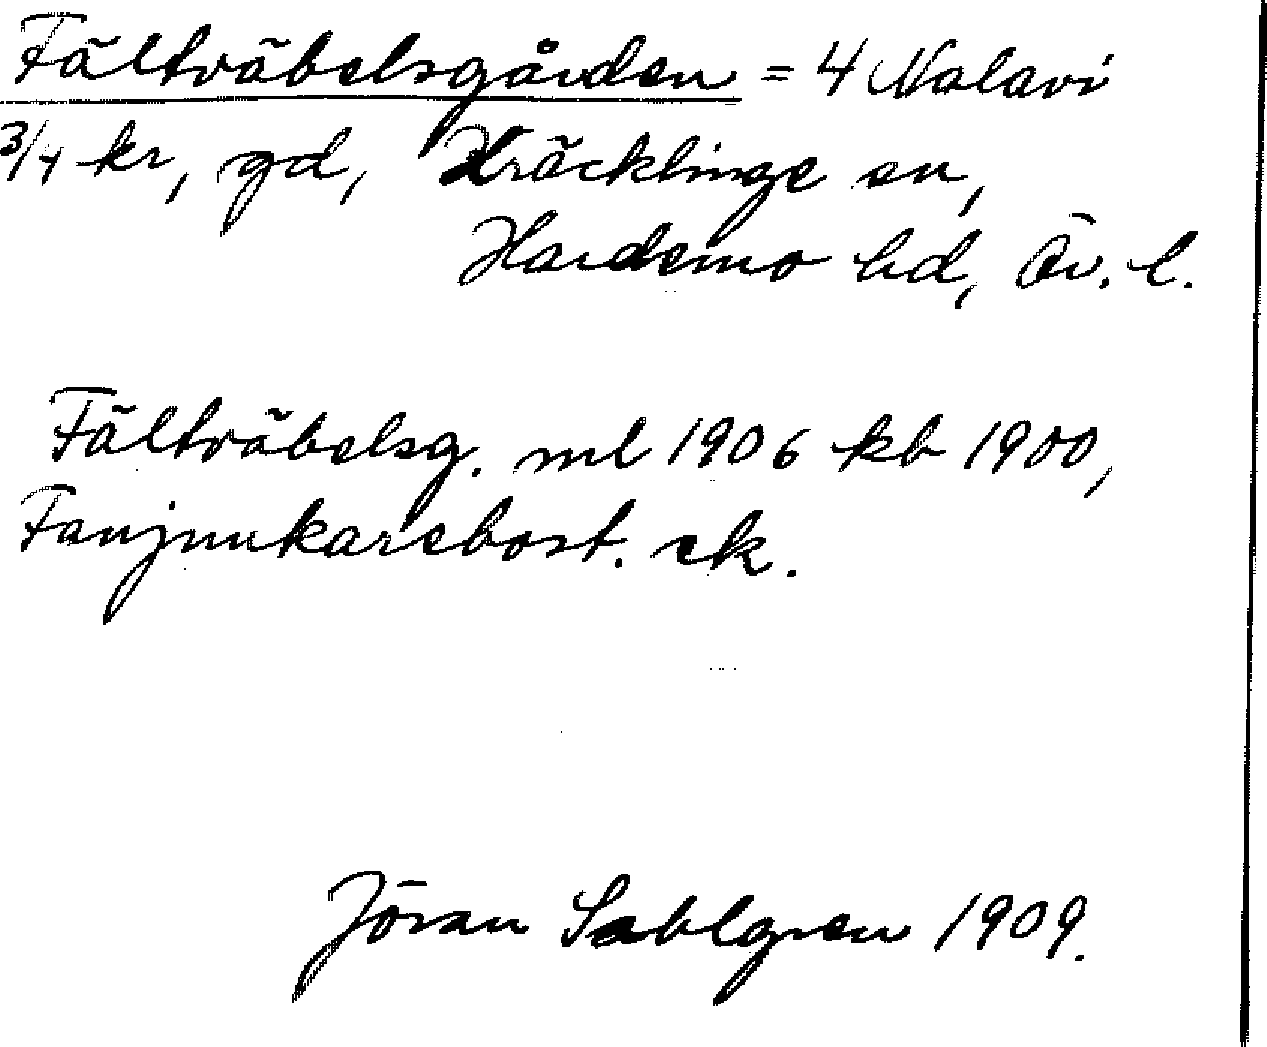 Fältväbelsgården = 4 Nalavi
3/4 kr, gd, Kräcklinge sn,
Hardemo hd, Ör. l.
Fältväbelsg. ml 1906 kb 1900,
Fanjunkarebost. ek.
Jöran Sahlgren 1909.